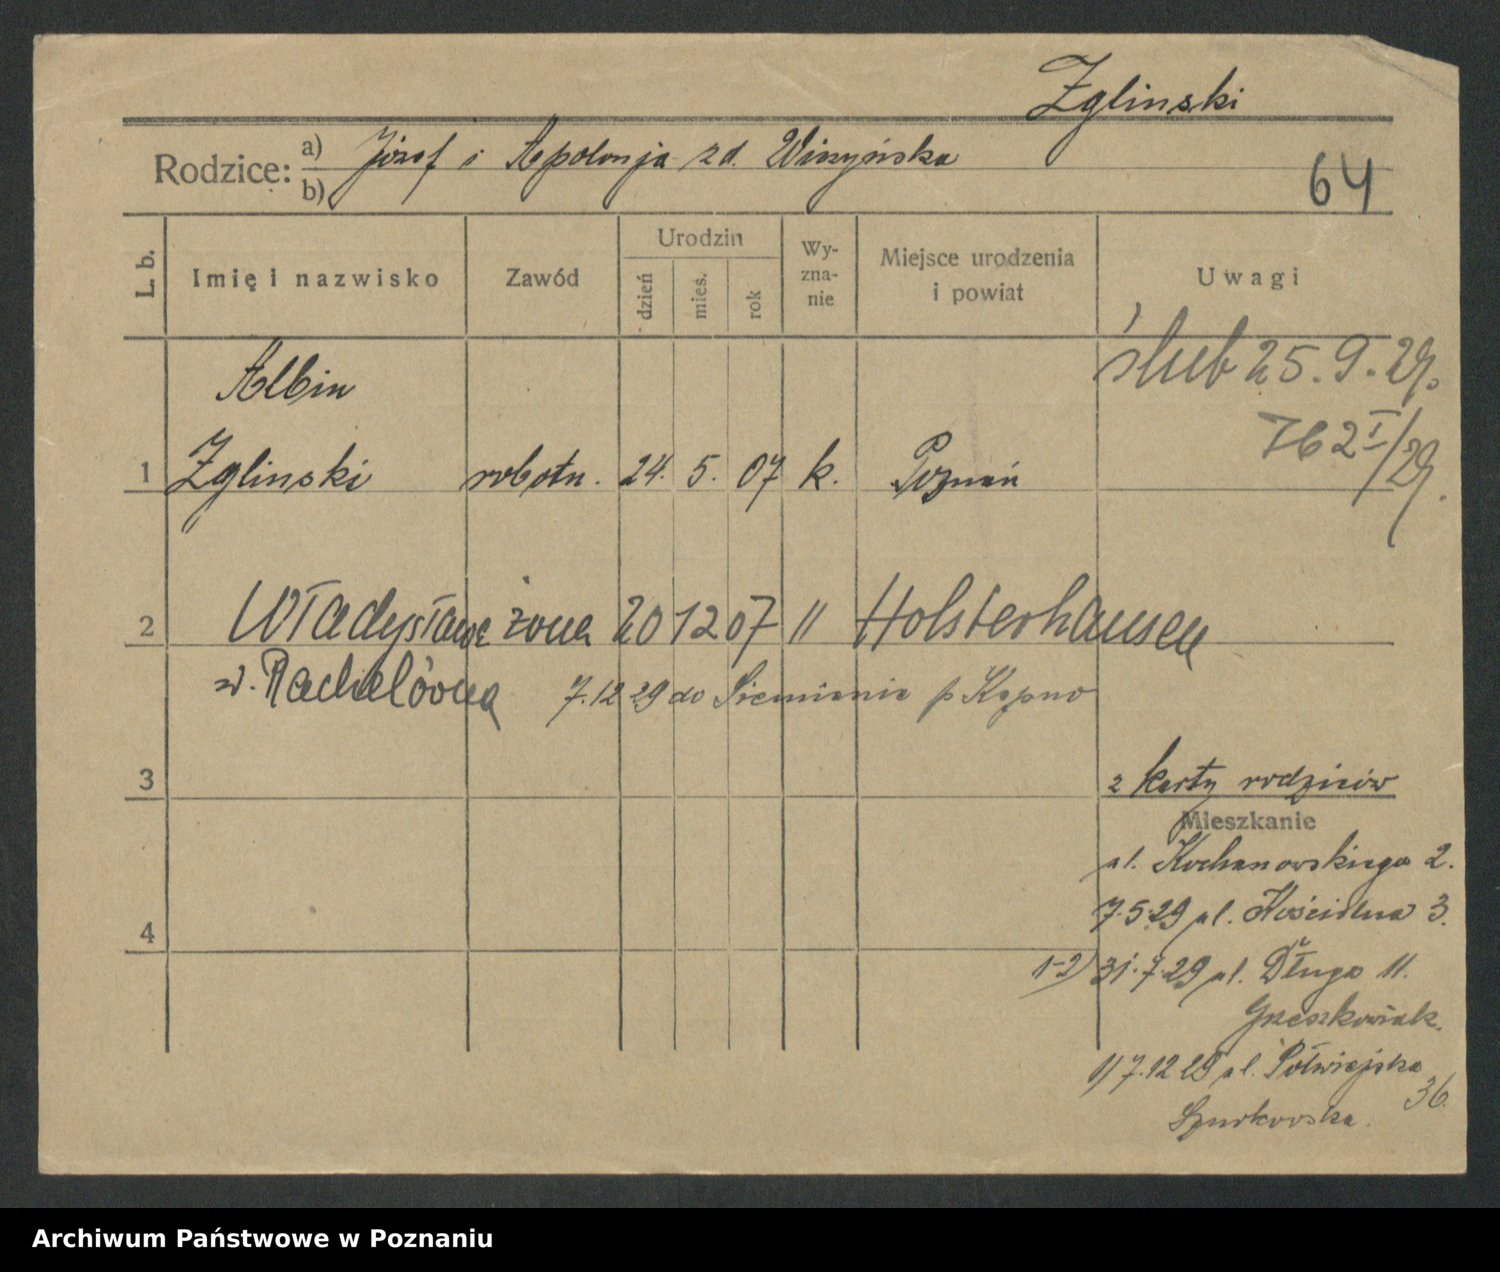 Zglinski
Rodzice: a) Józef i Apolonja zd. Wiszyńska
b)
64
L. b.
Imię i nazwisko
Zawód
Urodzin
dzień
mies.
rok
Wy-
zna-
nie
Miejsce urodzenia
i powiat
Uwagi
ślub 25.9.29.
762 I/29.
Albin
1 Zglinski robotn. 24. 5. 07 k. Poznań
2 Władysława żona 20 12 07 " Holsterhausen
z. Rachelówna 7.12 29 do Siemianic p Kępno
3
z karty rodziców
Mieszkanie
ul. Kochanowskiego 2.
7.5.29 ul. Kościelna 3.
4
1-2) 31.7.29 ul. Długa 11.
Grzeszkowiak.
1) 7.12 29 ul. Półwiejska
36.
Szurkowska.
Archiwum Państwowe w Poznaniu